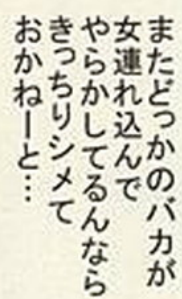 またどっかのバカが
女連れ込んで
やらかしてるんなら
きっちりシメて
おかねーと…